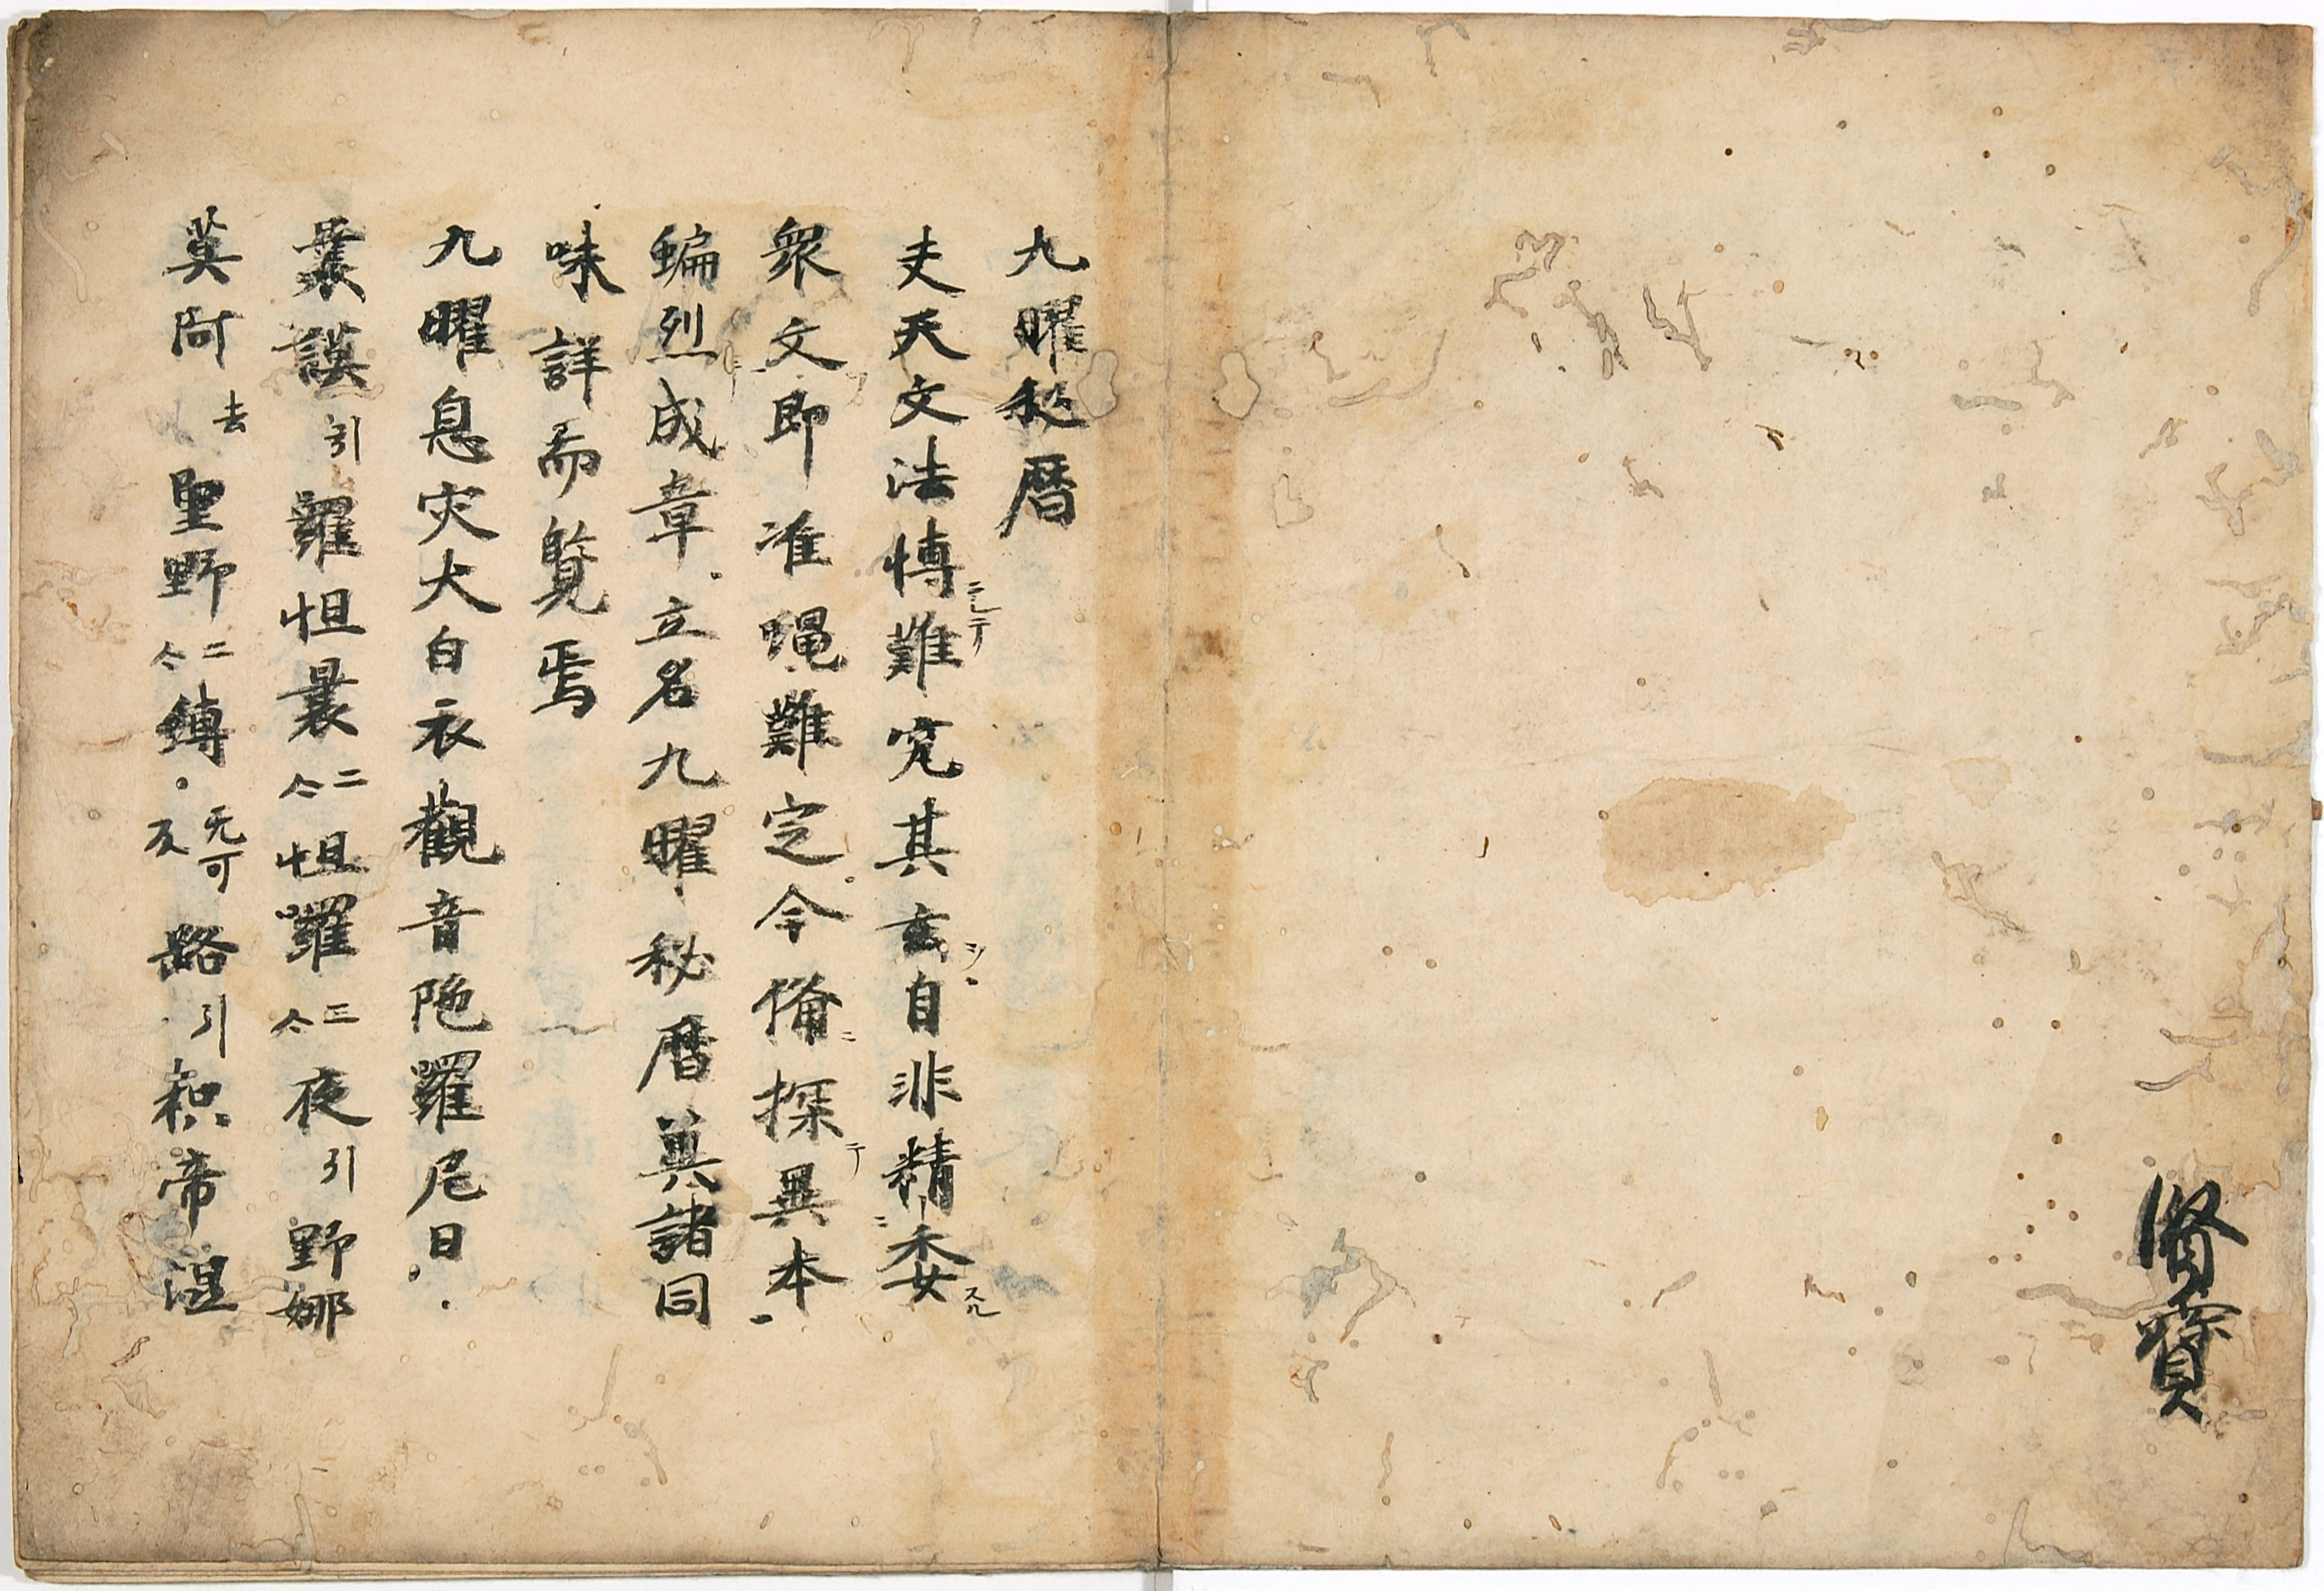 賢寶
九曜秘暦
夫天文法博難究其玄自非精委
衆文即准繩難定今備探異本
編烈成章立名九曜秘暦冀諸同
味詳而覧焉
九曜息灾大白衣觀音陁羅尼曰
曩謨引羅怛曩二合怛囉三合夜引野娜
莫阿去里野二合嚩无可反路引枳帝湿